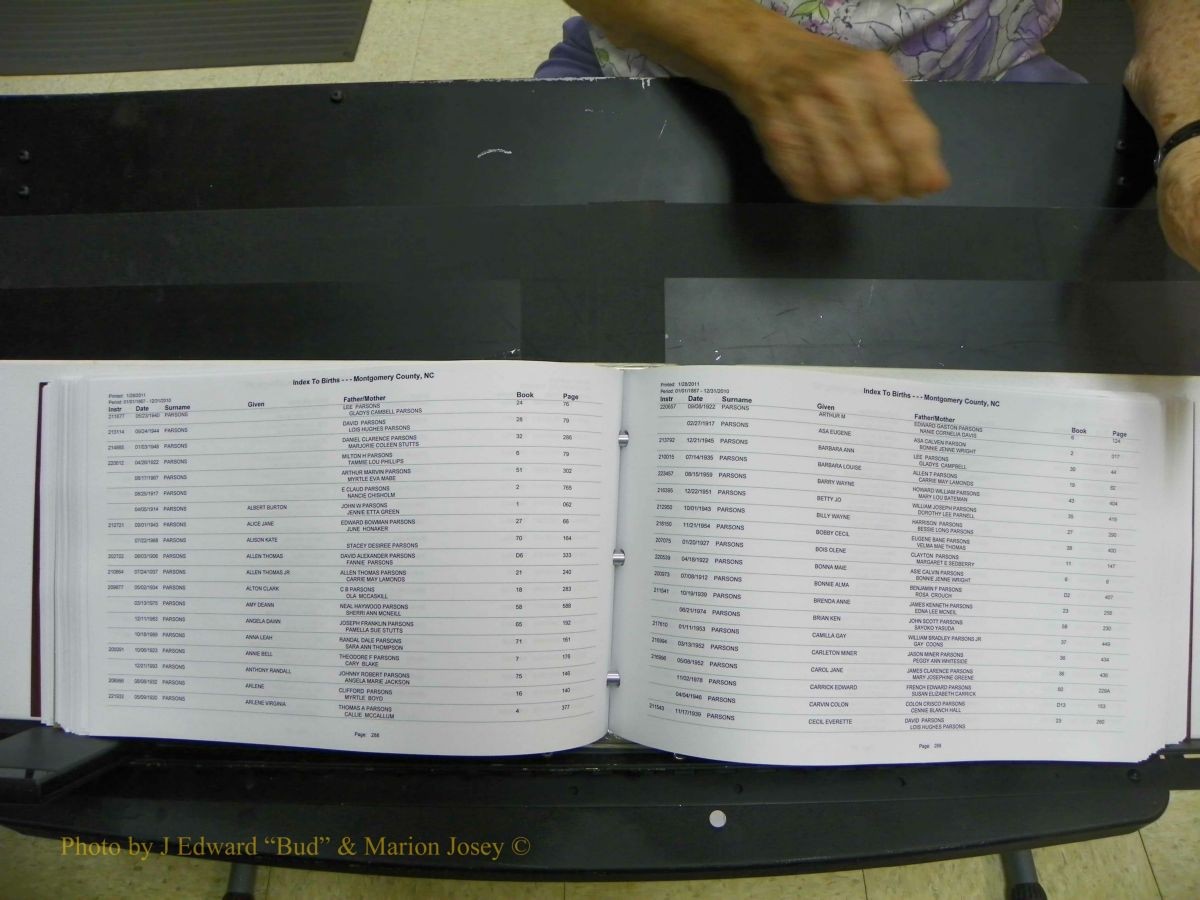 Index To Births - - - Montgomery County, NC
Printed: 1/28/2011
Period: 01/01/1867 - 12/31/2010
Instr Date Surname Given Father/Mother Book Page
211677 05/23/1940 PARSONS LEE PARSONS 24 76
GLADYS CAMBELL PARSONS
213114 PARSONS DAVID PARSONS 28 79
LOIS HUGHES PARSONS
PARSONS DANIEL CLARENCE PARSONS 32 286
MARJORIE COLEEN STUTTS
PARSONS MILTON H PARSONS 6 79
TAMMIE LOU PHILLIPS
PARSONS ARTHUR MARVIN PARSONS 51 302
MYRTLE EVA MABE
PARSONS E CLAUD PARSONS 2 765
NANCIE CHISHOLM
PARSONS ALBERT BURTON JOHN W PARSONS 1 062
JENNIE ETTA GREEN
212721 PARSONS ALICE JANE EDWARD BOWMAN PARSONS 27 66
JUNE HONAKER
PARSONS ALISON KATE 70 164
STACEY DESIREE PARSONS
202702 PARSONS ALLEN THOMAS DAVID ALEXANDER PARSONS D6 333
FANNIE PARSONS
210864 PARSONS ALLEN THOMAS JR ALLEN THOMAS PARSONS 21 240
CARRIE MAY LAMONDS
209877 PARSONS ALTON CLARK C B PARSONS 18 283
OLA MCCASKILL
PARSONS AMY DEANN NEAL HAYWOOD PARSONS 58 588
SHERRI ANN MCNEILL
PARSONS ANGELA DAWN JOSEPH FRANKLIN PARSONS 65 192
PAMELLA SUE STUTTS
PARSONS ANNA LEAH RANDAL DALE PARSONS 71 161
SARA ANN THOMPSON
PARSONS ANNIE BELL THEODORE F PARSONS 7 176
CARY BLAKE
PARSONS ANTHONY RANDALL JOHNNY ROBERT PARSONS 75 146
ANGELA MARIE JACKSON
PARSONS ARLENE CLIFFORD PARSONS 16 140
MYRTLE BOYD
PARSONS ARLENE VIRGINIA THOMAS A PARSONS 4 377
CALLIE MCCALLUM
Page:
Printed: 1/28/2011
Period: 01/01/1867 - 12/31/2010
Index To Births - - - Montgomery County, NC
Instr Date Surname Given Father/Mother Book Page
220657 09/06/1922 PARSONS ARTHUR M EDWARD GASTON PARSONS 6 124
NANIE CORNELIA DAVIS
02/27/1917 PARSONS ASA EUGENE ASA CALVEN PARSON 2 017
BONNIE JENNE WRIGHT
213792 12/21/1945 PARSONS BARBARA ANN LEE PARSONS 30 44
GLADYS CAMPBELL
210015 07/14/1935 PARSONS BARBARA LOUISE ALLEN T PARSONS 19 82
CARRIE MAY LAMONDS
08/15/1959 PARSONS BARRY WAYNE HOWARD WILLIAM PARSONS 43 404
MARY LOU BATEMAN
216395 12/22/1951 PARSONS BETTY JO WILLIAM JOSEPH PARSONS 35 419
DOROTHY LEE PARNELL
212950 10/01/1943 PARSONS BILLY WAYNE HARRISON PARSONS 27 290
BESSIE LONG PARSONS
11/21/1954 PARSONS BOBBY CECIL EUGENE BANE PARSONS 38 400
VELMA MAE THOMAS
207075 01/20/1927 PARSONS BOIS OLENE CLAYTON PARSONS 11 147
MARGARET E SEDBERRY
220539 04/18/1922 PARSONS BONNA MAIE ASIE CALVIN PARSONS 6 6
BONNIE JENNE WRIGHT
200973 07/08/1912 PARSONS BONNIE ALMA BENJAMIN F PARSONS D2 407
ROSA CROUCH
211541 10/19/1939 PARSONS BRENDA ANNE JAMES KENNETH PARSONS 23 258
EDNA LEE MCNEIL
06/21/1974 PARSONS BRIAN KEN JOHN SCOTT PARSONS 58 230
SAYOKO YASUDA
217610 01/11/1953 PARSONS CAMILLA GAY WILLIAM BRADLEY PARSONS JR 37 449
GAY COONS
216994 03/13/1952 PARSONS CARLETON MINER JASON MINER PARSONS 36 434
PEGGY ANN WHITESIDE
216996 05/08/1952 PARSONS CAROL JANE JAMES CLARENCE PARSONS 36 436
MARY JOSEPHINE GREENE
11/02/1978 PARSONS CARRICK EDWARD FRENCH EDWARD PARSONS 60 229A
SUSAN ELIZABETH CARRICK
04/04/1946 PARSONS CARVIN COLON COLON CRISCO PARSONS D13 153
CENNIE BLANCH HALL
211543 11/17/1939 PARSONS CECIL EVERETTE DAVID PARSONS 23 260
LOIS HUGHES PARSONS
Page:
Photo by J Edward “Bud” & Marion Josey ©